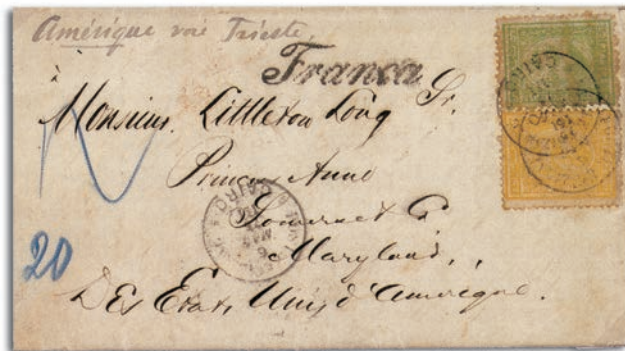 Amérique voie Trieste,
Franca
Monsieur. Littleton Long Sr.
Princess Anne
Somerset C.
Maryland,,
Des Etats Unis d'Amérique.
20
CAIRO
CAIRO
MAR